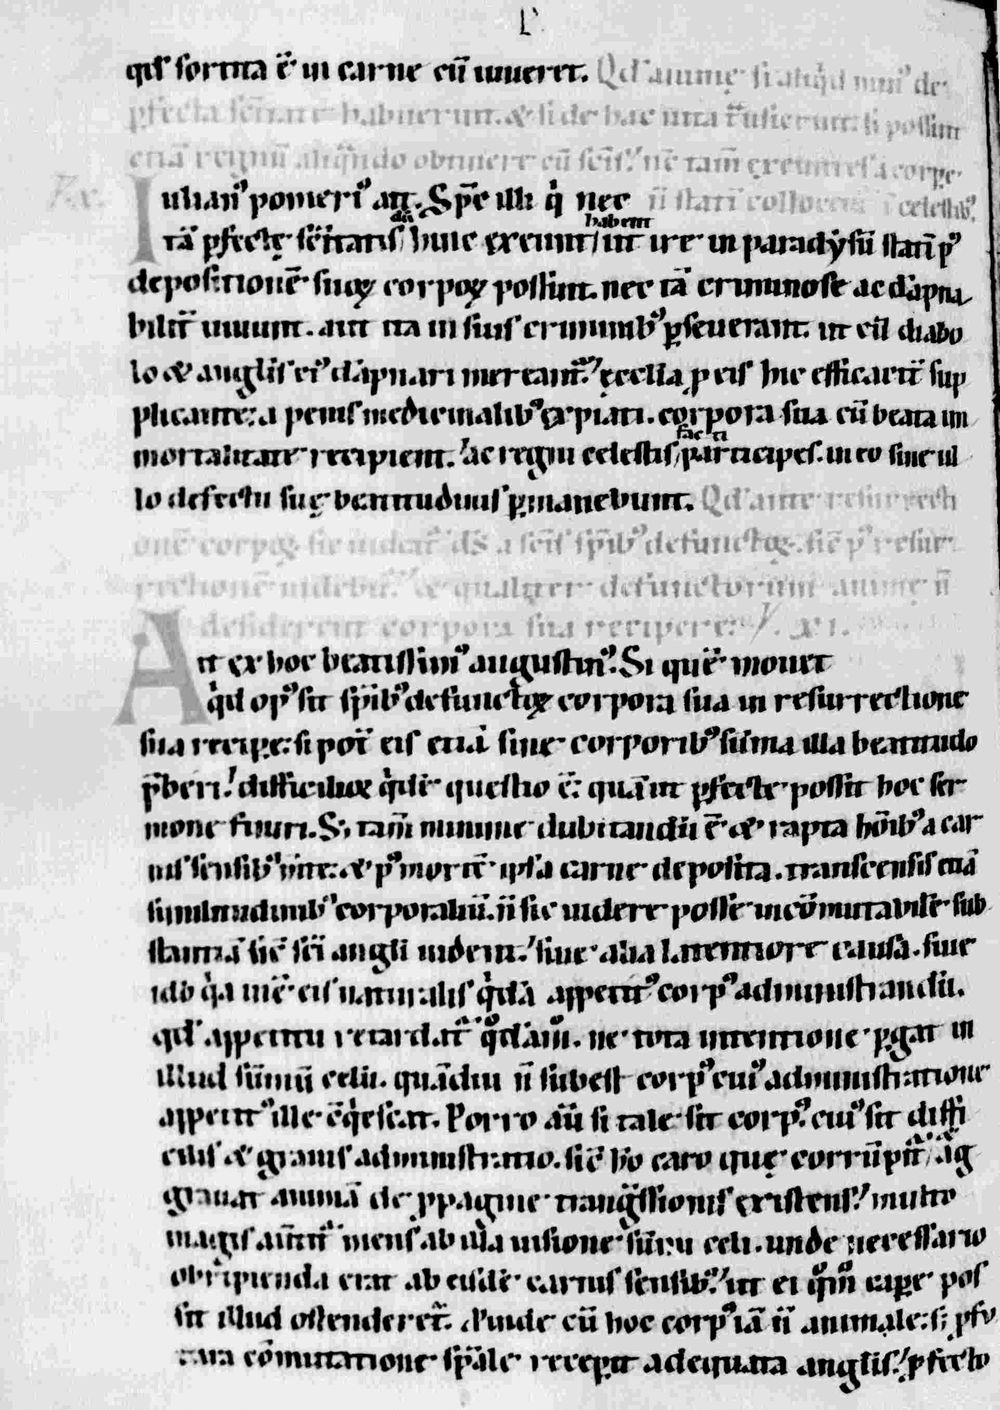 qiſ ſortita ē in carne cū uiueret. Qd' anime si aliqd min' de
pfecta ſcitate habuerunt. & ſi de hac uita exierunt: ſi poſſint
etiā regnū aliqndo obtinere cū ſciſ? nec tam̄
R x. celeſtib'
Iuliani pomerı' ait. Spe illi q̇ nec
habent
tā pfecte ſcitatiſ huc exeunt ut ire in paradẏſū ſtatī p'
depoſitionē ſuoꝝ corpoꝝ poſſint. nec tā criminoſe ac dāpna
bilit̄ uiuunt. aut ita in ſuiſ criminib' pſeuerant. ut cū diabo
lo & angliſ ei' dāpnari mereant̄? ęccla p eiſ hic efficacit̄ ſup
plicante: a peniſ medicinalib' expiati. corpora ſua cū beata im
facti
mortalitate recipient. ac regni celeſtiſ participeſ. in eo ſine ul
lo defectu ſuę beatitudiniſ pmanebunt. Qd' ante reſurrecti
onē corpoꝝ ſic uideat̄ d̄s a ſciſ ſpib' defunctoꝝ. ſic p' reſur
rectionē uidebit̄? & qualiter defunctorum anime n̄
deſiderent corpora ſua recipere? XI.
Ait ex hoc beatiſſim' auguſtin'. Si quē mouet
qd op' ſit ſpib' defunctoꝝ corpora ſua in reſurrectione
ſua recipe: ſi pot̄ eiſ etiā ſine corporib' ſūma illa beatitudo
p̄beri! difficiliuſ q̇dē queſtio ē: quā ut pfecte poſſit hoc ſer
mone finiri. S; tam̄ minime dubitandū ē & rapta hōib' a car
niſ ſenſib' m̄te: & p' mortē ipſa carne depoſita. tranſcenſiſ etiā
ſimilitudinib' corporaliū. n̄ ſic uidere poſſe incōmutabilē ſub
ſtantiā ſic ſci angli uident! ſiue alia latentiore cauſa. ſiue
ido q̇a inē eiſ naturaliſ q̇dā appetit' corp' adminiſtrandū.
qd' appetitu retardat̄ q̇dāmō. ne tota intentione pgat in
illud ſūmū celū. quādiu n̄ ſubeſt corp' cui' adminiſtratione
appetit' ille cq̇eſcat. Porro aū ſi tale ſit corp'. cui' ſit diffi
ciliſ & grauiſ adminiſtratio. ſic h̊ caro quę corrūpit̄ ag
grauat animā de ppagine tranſgſſioniſ exiſtenſ! multo
magiſ auertit̄ menſ ab illa uiſione ſūmi celi. unde neceſſario
obripienda erat ab eiſdē carniſ ſenſib'! ut ei qm̊ cape poſ
ſit illud oſtenderet̄. Pinde cū hoc corp' iā n̄ animale: ſ; p fu
tura cōmutatione ſpāle recepit adequata angliſ! pfecto